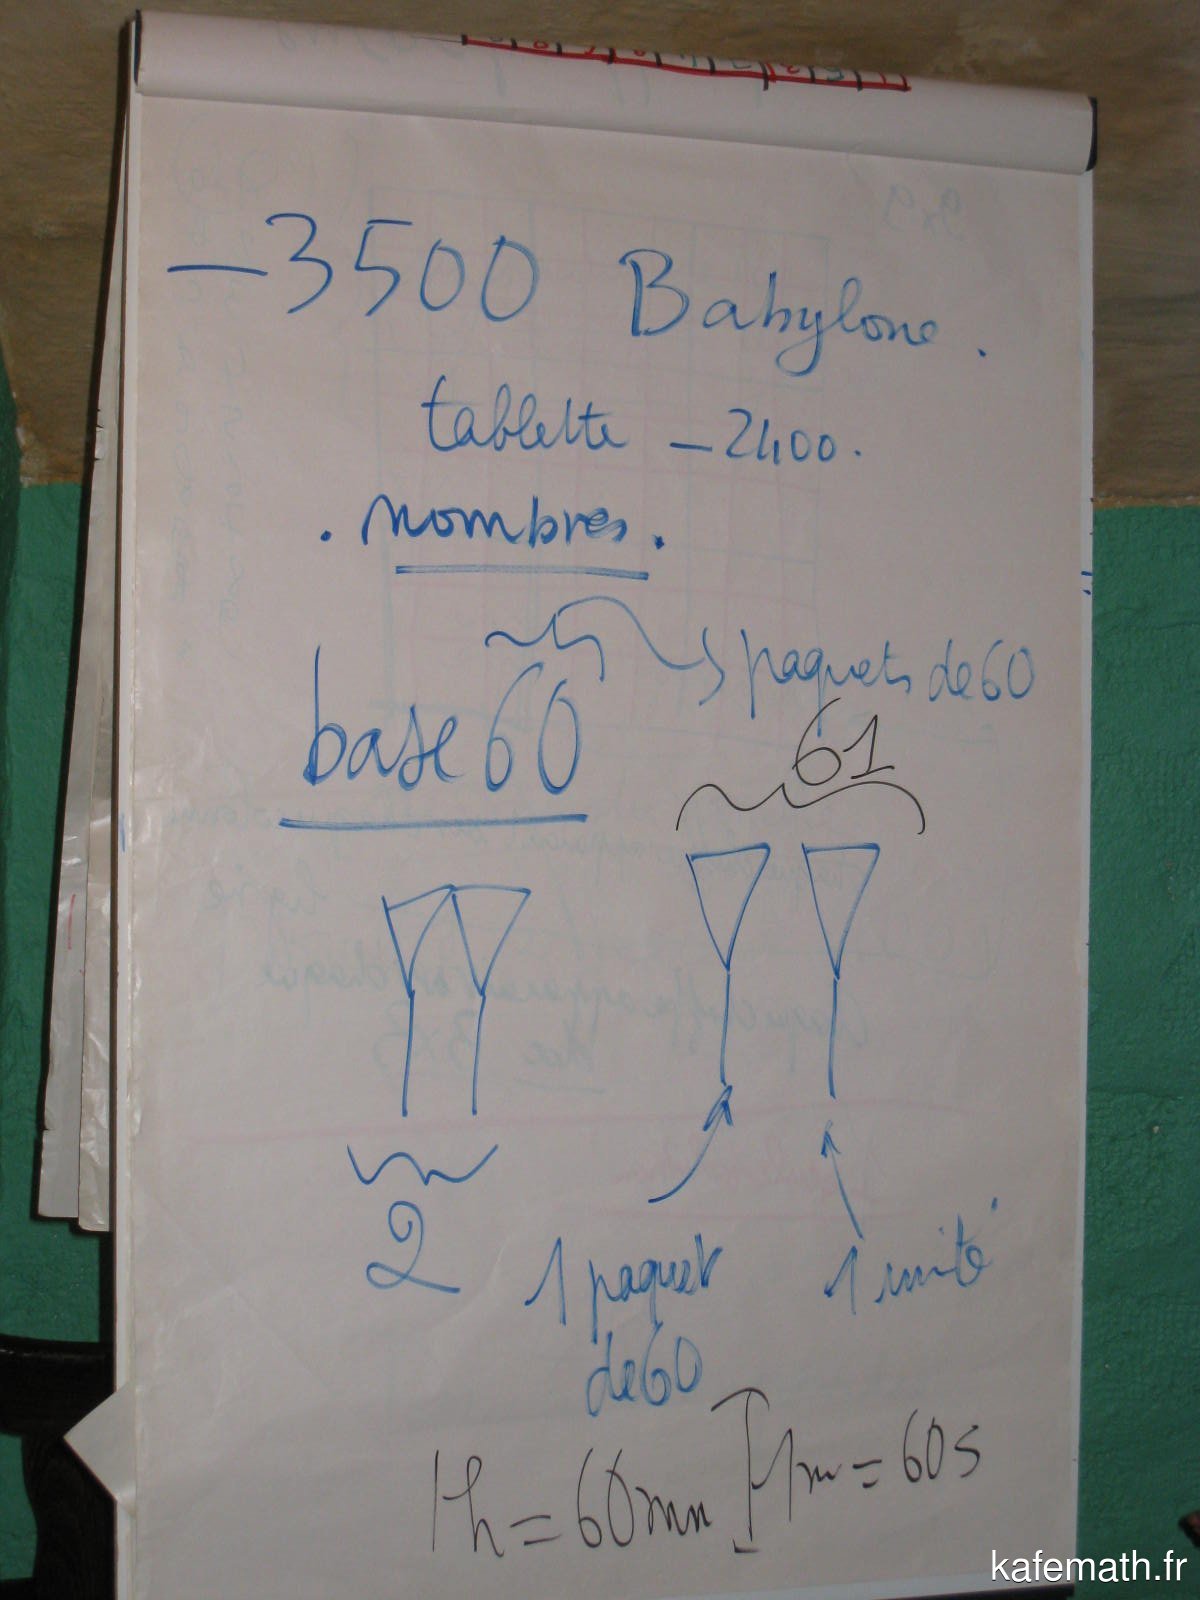 -3500 Babylone.
tablette -2400.
. nombres.
base 60
paquets de 60
61
2
1 paquet
de 60
1 unité
1h = 60mn
1m = 60s
kafemath.fr